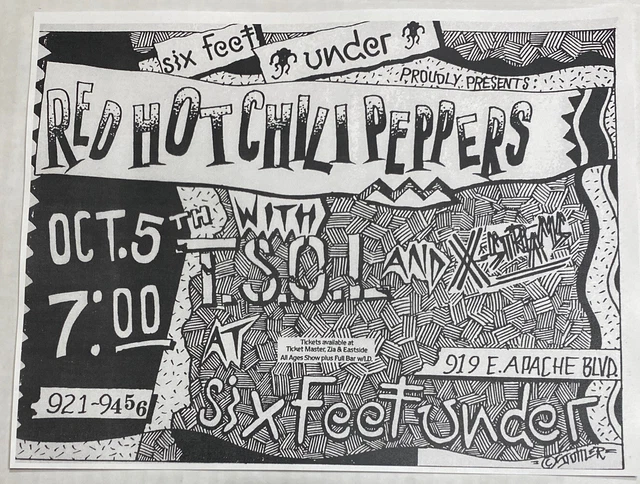 six feet under
PROUDLY PRESENTS
RED HOT CHILI PEPPERS
OCT. 5TH
7:00
921-9456
WITH
T.S.O.L
AND X-STREAMS
AT
Tickets available at
Ticket Master, Zia & Eastside
All Ages Show plus Full Bar w/I.D.
919 E. APACHE BLVD.
six Feet under